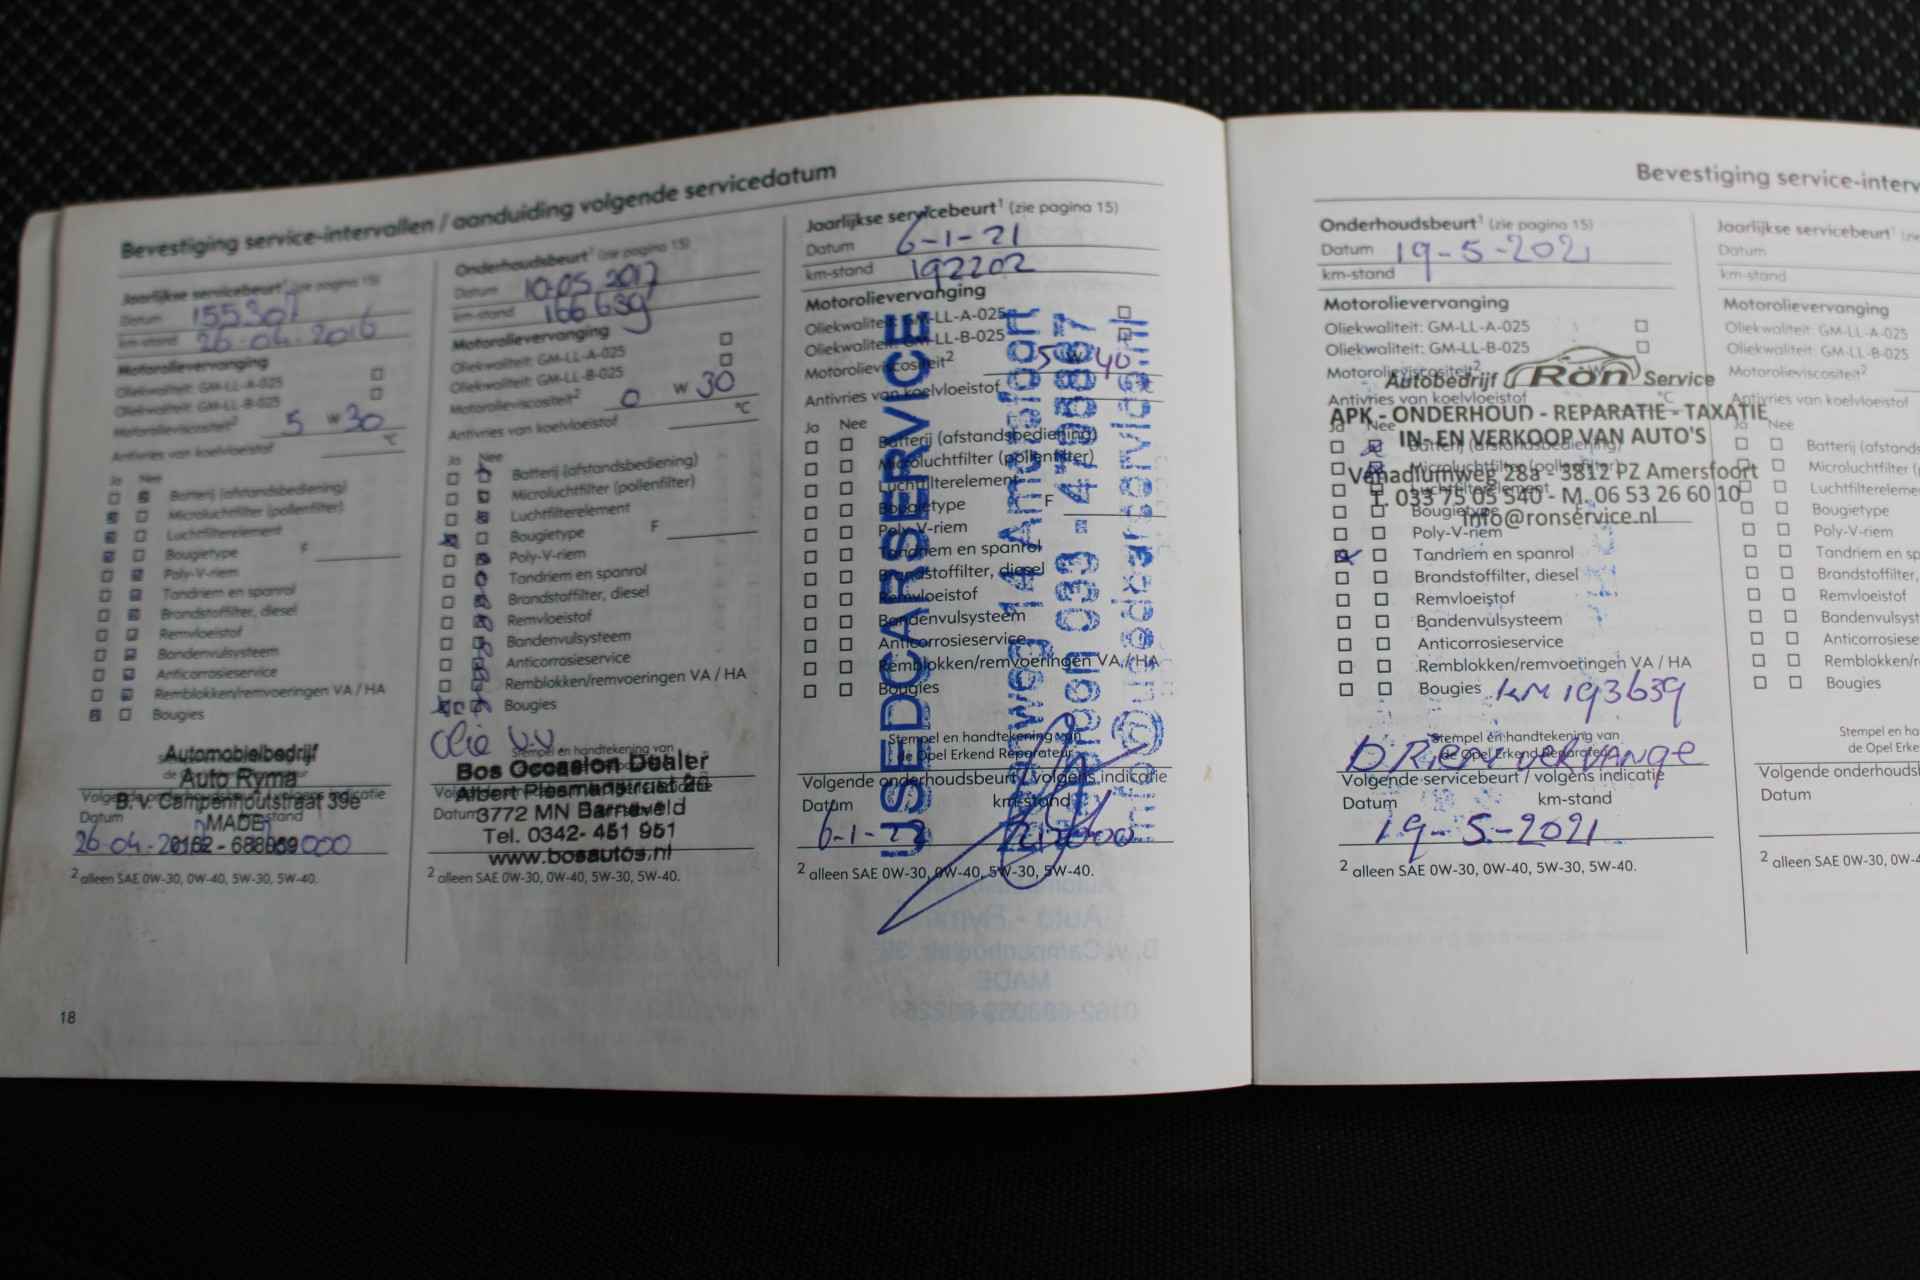 Bevestiging service-intervallen / aanduiding volgende servicedatum
Jaarlijkse servicebeurt¹ (zie pagina 15)
Datum 155307
km-stand 26-04-2016
Motorolievervanging
Oliekwaliteit: GM-LL-A-025
Oliekwaliteit: GM-LL-B-025
Motorolieviscositeit² 5 W 30
Antivries van koelvloeistof °C
Ja Nee
Batterij (afstandsbediening)
Microluchtfilter (pollenfilter)
Luchtfilterelement
Bougietype F
Poly-V-riem
Tandriem en spanrol
Brandstoffilter, diesel
Remvloeistof
Bandenvulsysteem
Anticorrosieservice
Remblokken/remvoeringen VA / HA
Bougies
Automobielbedrijf
Auto Ryma
B. v. Campenhoutstraat 39e
MADE
Datum
26-04-
000
Onderhoudsbeurt¹ (zie pagina 15)
Datum 10-05-2017
km-stand 166639
Motorolievervanging
Oliekwaliteit: GM-LL-A-025
Oliekwaliteit: GM-LL-B-025
Motorolieviscositeit² 0 W 30
Antivries van koelvloeistof °C
Ja Nee
Batterij (afstandsbediening)
Microluchtfilter (pollenfilter)
Luchtfilterelement
Bougietype F
Poly-V-riem
Tandriem en spanrol
Brandstoffilter, diesel
Remvloeistof
Bandenvulsysteem
Anticorrosieservice
Remblokken/remvoeringen VA / HA
Bougies
Olie v.v
Stempel en handtekening van
Bos Occasion Dealer
Albert Plesmanstraat 26
Datum
3772 MN Barneveld
Tel. 0342- 451 951
www.bosautos.nl
² alleen SAE 0W-30, 0W-40, 5W-30, 5W-40.
² alleen SAE 0W-30, 0W-40, 5W-30, 5W-40.
Jaarlijkse servicebeurt¹ (zie pagina 15)
Datum 6-1-21
km-stand 192202
Motorolievervanging
Oliekwaliteit: GM-LL-A-025
Oliekwaliteit: GM-LL-B-025
Motorolieviscositeit² 5 W 40
Antivries van koelvloeistof
Ja Nee
Batterij (afstandsbediening)
Microluchtfilter (pollenfilter)
Luchtfilterelement
Bougietype F
Poly-V-riem
Tandriem en spanrol
Brandstoffilter, diesel
Remvloeistof
Bandenvulsysteem
Anticorrosieservice
Remblokken/remvoeringen VA / HA
Bougies
USEDCARSERVICE
14 Amersfoort
033 - 4790887
Stempel en handtekening van
de Opel Erkend Reparateur
Volgende onderhoudsbeurt / volgens indicatie
Datum km-stand
6-1-22
² alleen SAE 0W-30, 0W-40, 5W-30, 5W-40.
18
Bevestiging service-interv
Onderhoudsbeurt¹ (zie pagina 15)
Datum 19-5-2021
km-stand
Motorolievervanging
Oliekwaliteit: GM-LL-A-025
Oliekwaliteit: GM-LL-B-025
Motorolieviscositeit²
Antivries van koelvloeistof °C
Autobedrijf Ron Service
APK - ONDERHOUD - REPARATIE - TAXATIE
IN- EN VERKOOP VAN AUTO'S
Vanadiumweg 28a - 3812 PZ Amersfoort
T. 033 75 05 540 - M. 06 53 26 60 10
info@ronservice.nl
Ja Nee
Batterij (afstandsbediening)
Microluchtfilter (pollenfilter)
Luchtfilterelement
Bougietype
Poly-V-riem
Tandriem en spanrol
Brandstoffilter, diesel
Remvloeistof
Bandenvulsysteem
Anticorrosieservice
Remblokken/remvoeringen VA / HA
Bougies km 193639
Stempel en handtekening van
de Opel Erkend Reparateur
D Riem vervange
Volgende servicebeurt / volgens indicatie
Datum km-stand
19-5-2021
² alleen SAE 0W-30, 0W-40, 5W-30, 5W-40.
Jaarlijkse servicebeurt¹ (zie
Datum
km-stand
Motorolievervanging
Oliekwaliteit: GM-LL-A-025
Oliekwaliteit: GM-LL-B-025
Motorolieviscositeit²
Antivries van koelvloeistof
Ja Nee
Batterij (afstands
Microluchtfilter (p
Luchtfilterelemen
Bougietype
Poly-V-riem
Tandriem en sp
Brandstoffilter,
Remvloeistof
Bandenvulsyst
Anticorrosiese
Remblokken/
Bougies
Stempel en ha
de Opel Erke
Volgende onderhouds
Datum
² alleen SAE 0W-30, 0W-4